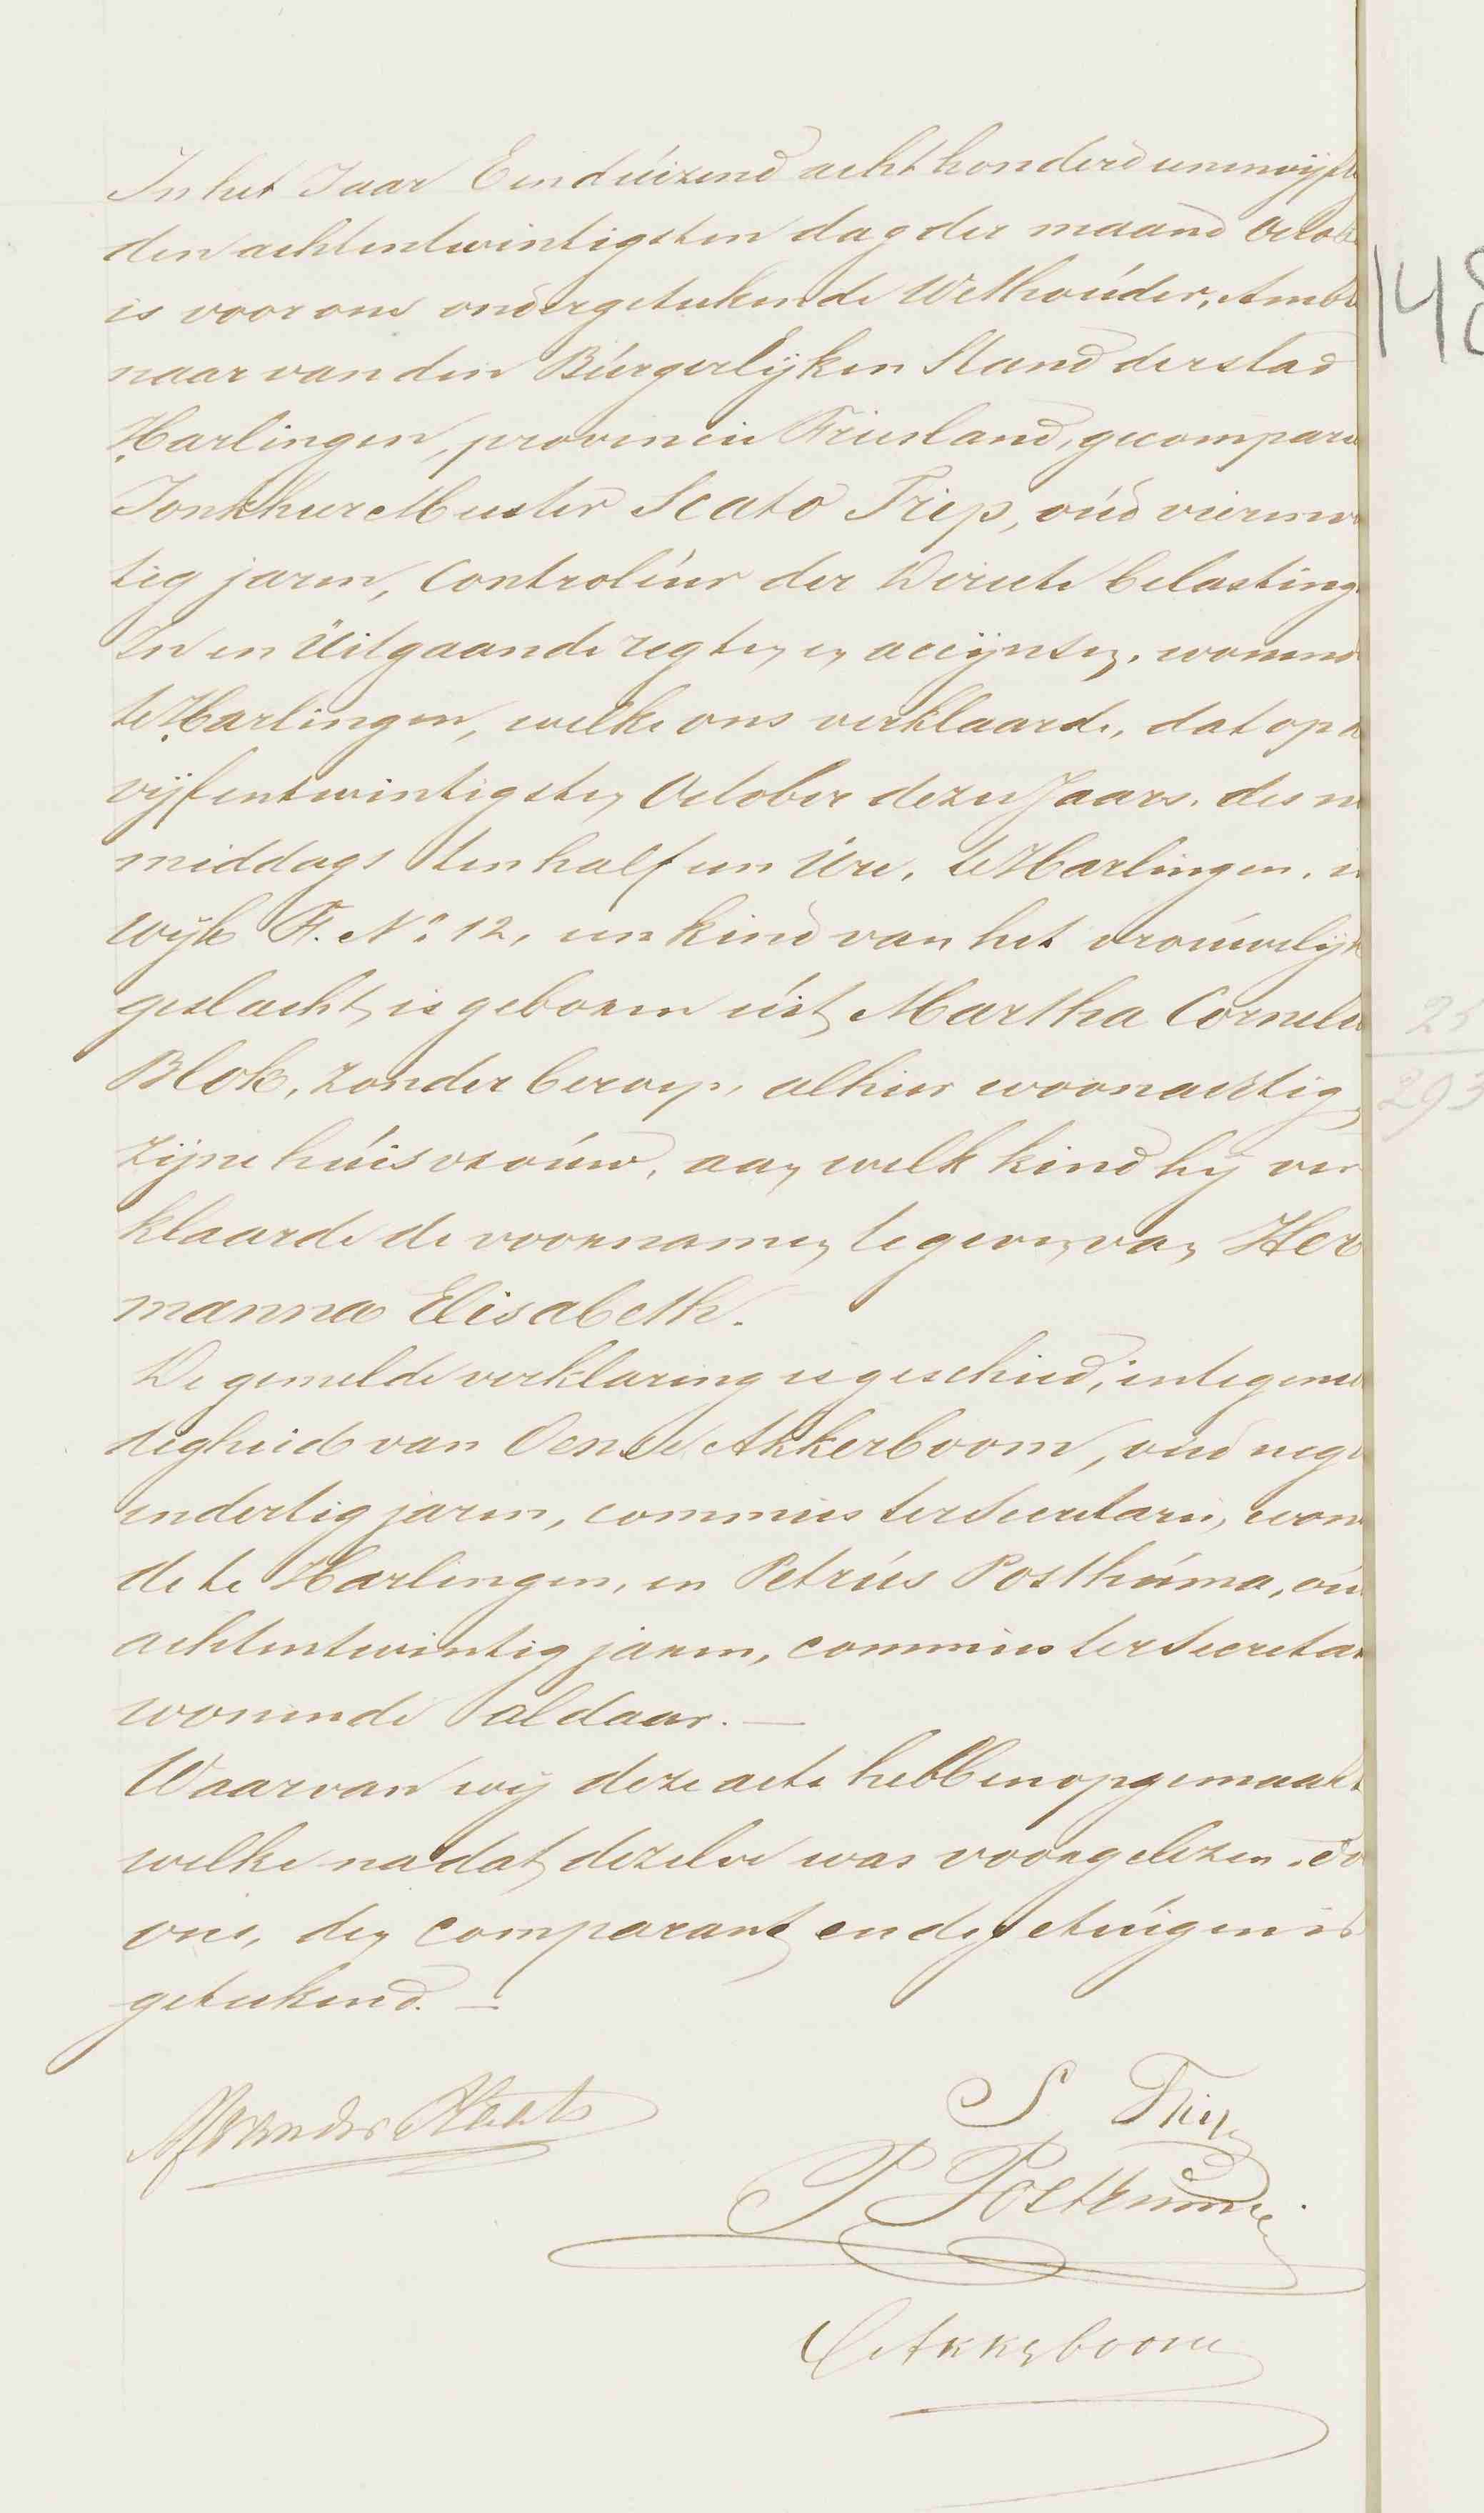 In het Jaar Eenduizend achthonderd eenenvijfti
den achtentwintigsten dag der maand Octob
is voor ons ondergetekende Wethouder, Ambt
naar van den Burgerlijken Stand der stad
Harlingen, provincie Friesland, gecompare
Jonkheer Meester Scato Trip, oud vierenve
tig jaren, Controleur der Directe belasting
In en Uitgaande regten en accijnsen, wonend
te Harlingen, welke ons verklaarde, dat op d
vijfentwintigsten October dezes Jaars, des na
middags ten half een Ure, te Harlingen, i
wijk F. No. 12, een kind van het vrouwelijk
geslacht, is geboren uit, Martha Corneli
Blok, zonder beroep, alhier woonachtig,
zijne huisvrouw, aan welk kind hij ver
klaarde de voornamen te geven van Her
manna Elisabeth.
De gemelde verklaring is geschied, in tegenwo
digheid van Oense Akkerboom, oud nege
endertig jaren, commies ter Secretarie, wonen
de te Harlingen, en Petrus Posthuma, ou
achtentwintig jaren, commies ter Secretar
wonende aldaar. —
Waarvan wij deze acte hebben opgemaakt
welke nadat dezelve was voorgelezen, do
ons, den comparant en de getuigen is
getekend. —
S Trip
P Posthuma
O Akkerboom
148
25
293